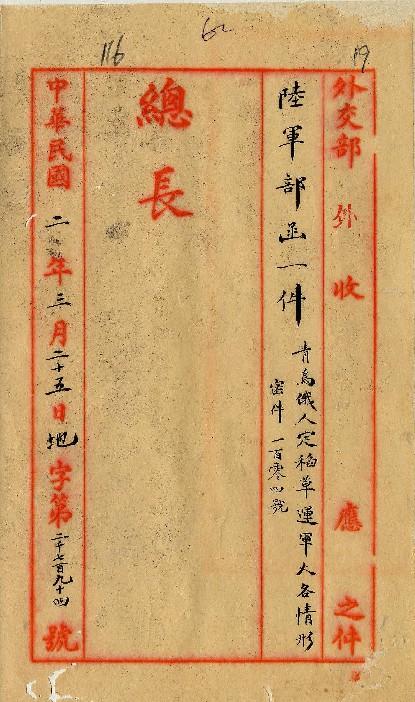 116
62
19
外交部 外 收 應 之件
陸軍部函一件 青島俄人定稻草運軍火各情形
密件 一百零八號
總長
中華民國二年三月二十五日地字第二千七百九十四號